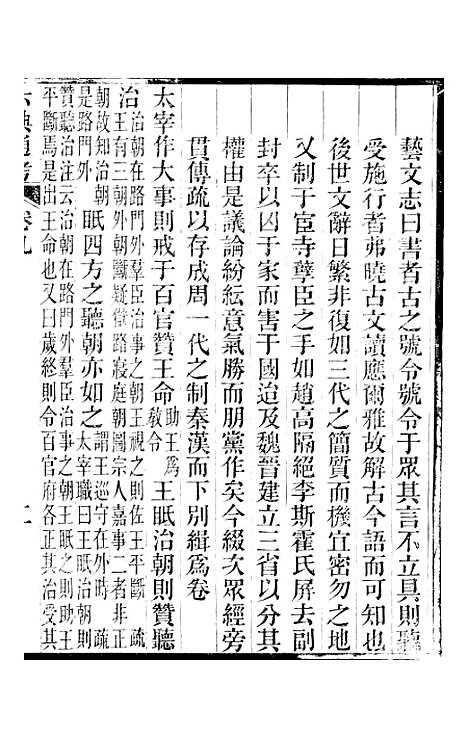 藝文志曰書者古之號令號令于眾其言不立具則聽
受施行者弗曉古文讀應爾雅故解古今語而可知也
後世文辭日繁非復如三代之簡質而機宜密勿之地
又制于宦寺孽臣之手如趙高隔絕李斯霍氏屏去副
封卒以凶于家而害于國迨及魏晉建立三省以分其
權由是議論紛紜意氣勝而朋黨作矣今綴次眾經旁
貫傳疏以存成周一代之制秦漢而下別緝爲卷
太宰作大事則戒于百官贊王命助王爲教令王眂治朝則贊聽
治治朝在路門外羣臣治事之朝王視之則佐王平斷疏王有三朝外朝斷疑獄路寢庭朝圖宗人嘉事二者非正
朝故知治朝在是路門外眂四方之聽朝亦如之謂王巡守在外時疏太宰職曰王眂治朝則
贊聽治注云治朝在路門外羣臣治事之朝王眂之則助王
平斷焉是出王命也又曰歲終則令百官府各正其治受其
六典通考 卷九 二